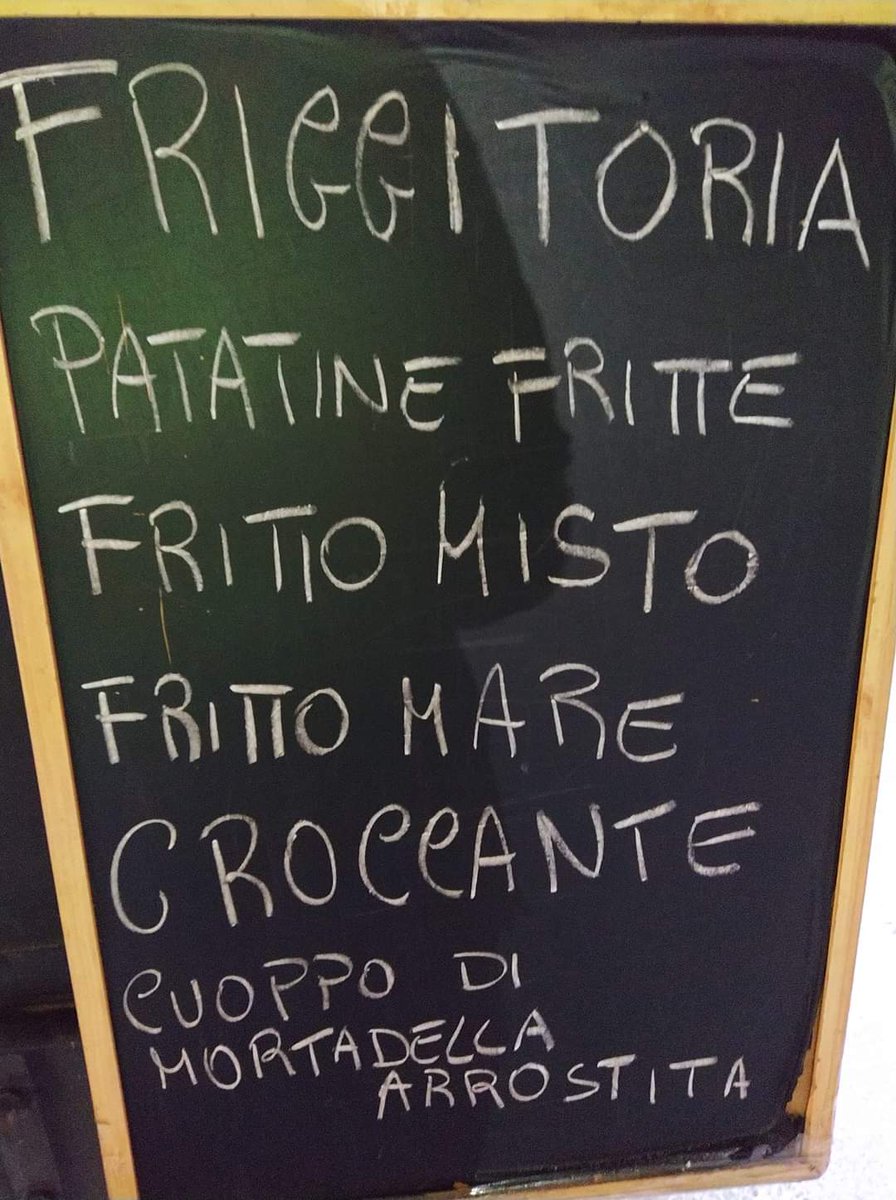 FRIGGITORIA
PATATINE FRITTE
FRITTO MISTO
FRITTO MARE
CROCCANTE
CUOPPO DI
MORTADELLA
ARROSTITA